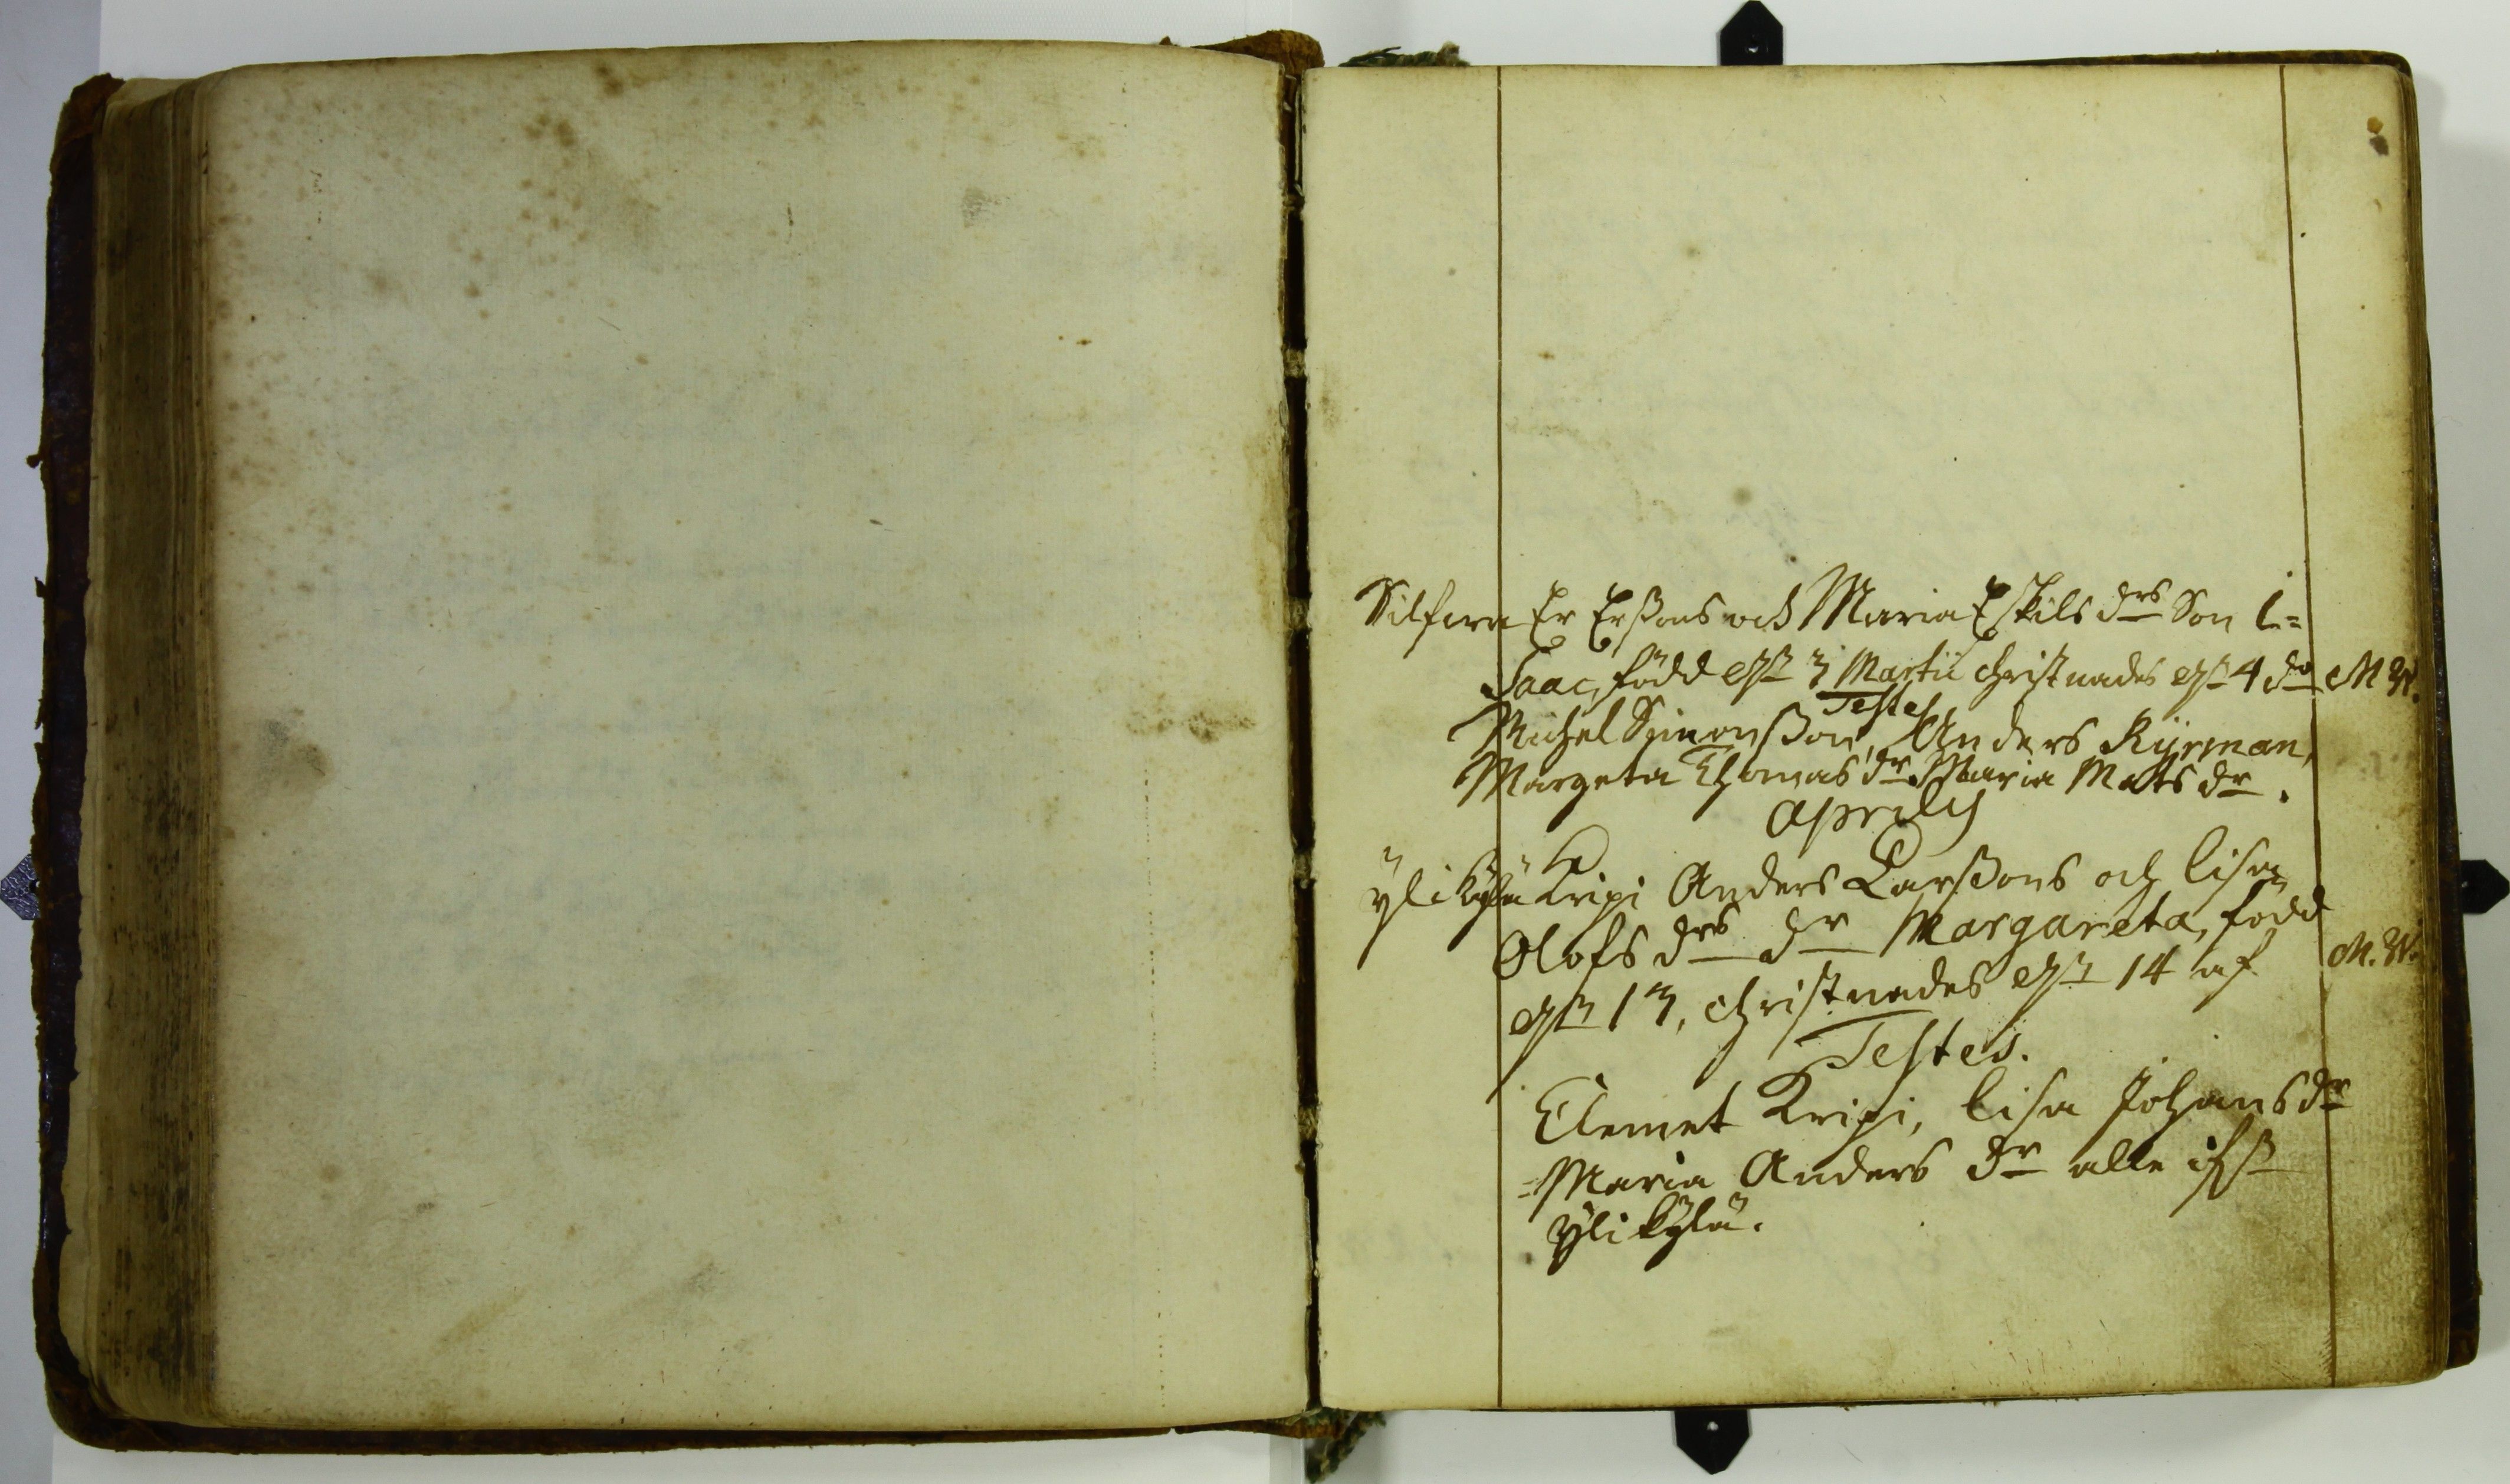 Silfvra Er Erßons och Maria Eskils drs Son I=
Isaac, född d. 3 Martii christnades d. 4 do M W.
Testes
Michel Simonßon, Anders Kijrman,
Margeta Thomas dr Maria Mats dr.
Aprilis
Ylikylä Kripi Anders Larßons och Lisa
Olofs drs dr Margareta, född
d. 13, christnades d. 14 af M. W.
Testes.
Clemet Kripi, Lisa Johans dr
Maria Anders dr alle
Ylikylä.